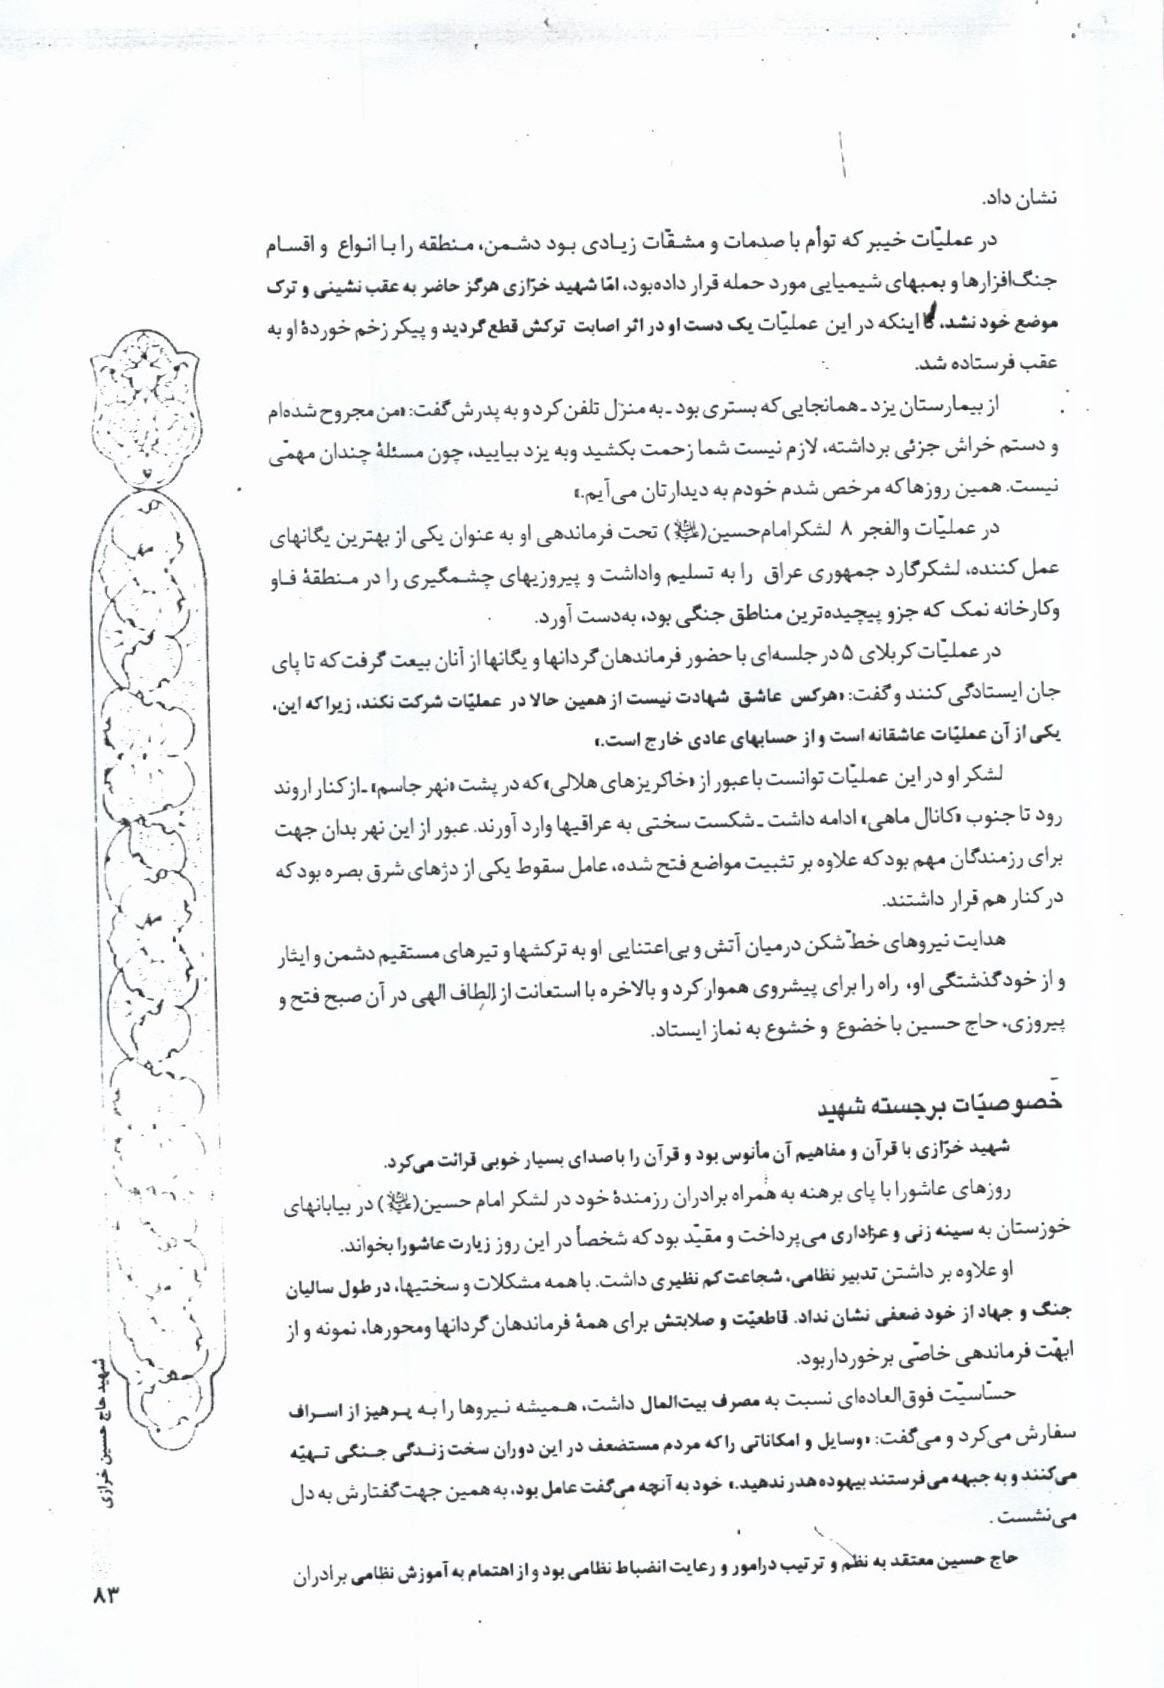 نشان داد.
در عملیّات خیبر که توأم با صدمات و مشقّات زیادی بود دشمن، منطقه را با انواع و اقسام
جنگ‌افزارها و بمبهای شیمیایی مورد حمله قرار داده‌بود، امّا شهید خرّازی هرگز حاضر به عقب نشینی و ترک
موضع خود نشد، تا اینکه در این عملیّات یک دست او در اثر اصابت ترکش قطع گردید و پیکر زخم خوردهٔ او به
عقب فرستاده شد.
از بیمارستان یزد ـ همانجایی که بستری بود ـ به منزل تلفن کرد و به پدرش گفت: «من مجروح شده‌ام
و دستم خراش جزئی برداشته، لازم نیست شما زحمت بکشید وبه یزد بیایید، چون مسئلهٔ چندان مهمّی
نیست. همین روزها که مرخص شدم خودم به دیدارتان می‌آیم.»
در عملیّات والفجر ۸ لشکر امام‌حسین(علیه‌السلام) تحت فرماندهی او به عنوان یکی از بهترین یگانهای
عمل کننده، لشکرگارد جمهوری عراق را به تسلیم واداشت و پیروزیهای چشمگیری را در منطقهٔ فاو
وکارخانه نمک که جزو پیچیده‌ترین مناطق جنگی بود، به‌دست آورد.
در عملیّات کربلای ۵ در جلسه‌ای با حضور فرماندهان گردانها و یگانها از آنان بیعت گرفت که تا پای
جان ایستادگی کنند و گفت: «هرکس عاشق شهادت نیست از همین حالا در عملیّات شرکت نکند، زیرا که این،
یکی از آن عملیّات عاشقانه است و از حسابهای عادی خارج است.»
لشکر او در این عملیّات توانست با عبور از «خاکریزهای هلالی» که در پشت «نهر جاسم» ـ از کنار اروند
رود تا جنوب «کانال ماهی» ادامه داشت ـ شکست سختی به عراقیها وارد آورند. عبور از این نهر بدان جهت
برای رزمندگان مهم بود که علاوه بر تثبیت مواضع فتح شده، عامل سقوط یکی از دژهای شرق بصره بود که
در کنار هم قرار داشتند.
هدایت نیروهای خطّ شکن درمیان آتش و بی‌اعتنایی او به ترکشها و تیرهای مستقیم دشمن و ایثار
و از خود گذشتگی او، راه را برای پیشروی هموار کرد و بالاخره با استعانت از الطاف الهی در آن صبح فتح و
پیروزی، حاج حسین با خضوع و خشوع به نماز ایستاد.
خصوصیّات برجسته شهید
شهید خرّازی با قرآن و مفاهیم آن مأنوس بود و قرآن را باصدای بسیار خوبی قرائت می‌کرد.
روزهای عاشورا با پای برهنه به همراه برادران رزمندهٔ خود در لشکر امام حسین(علیه‌السلام) در بیابانهای
خوزستان به سینه زنی و عزاداری می‌پرداخت و مقیّد بود که شخصاً در این روز زیارت عاشورا بخواند.
او علاوه بر داشتن تدبیر نظامی، شجاعت کم نظیری داشت. با همه مشکلات و سختیها، در طول سالیان
جنگ و جهاد از خود ضعفی نشان نداد. قاطعیّت و صلابتش برای همهٔ فرماندهان گردانها ومحورها، نمونه و از
ابهّت فرماندهی خاصّی برخورداربود.
حسّاسیّت فوق‌العاده‌ای نسبت به مصرف بیت‌المال داشت، همیشه نیروها را به پرهیز از اسراف
سفارش می‌کرد و می‌گفت: «وسایل و امکاناتی را که مردم مستضعف در این دوران سخت زندگی جنگی تهیّه
می‌کنند و به جبهه می‌فرستند بیهوده هدر ندهید.» خود به آنچه می‌گفت عامل بود، به همین جهت گفتارش به دل
می‌نشست .
حاج حسین معتقد به نظم و ترتیب درامور و رعایت انضباط نظامی بود و از اهتمام به آموزش نظامی برادران
شهید حاج حسین خرازی
۸۳